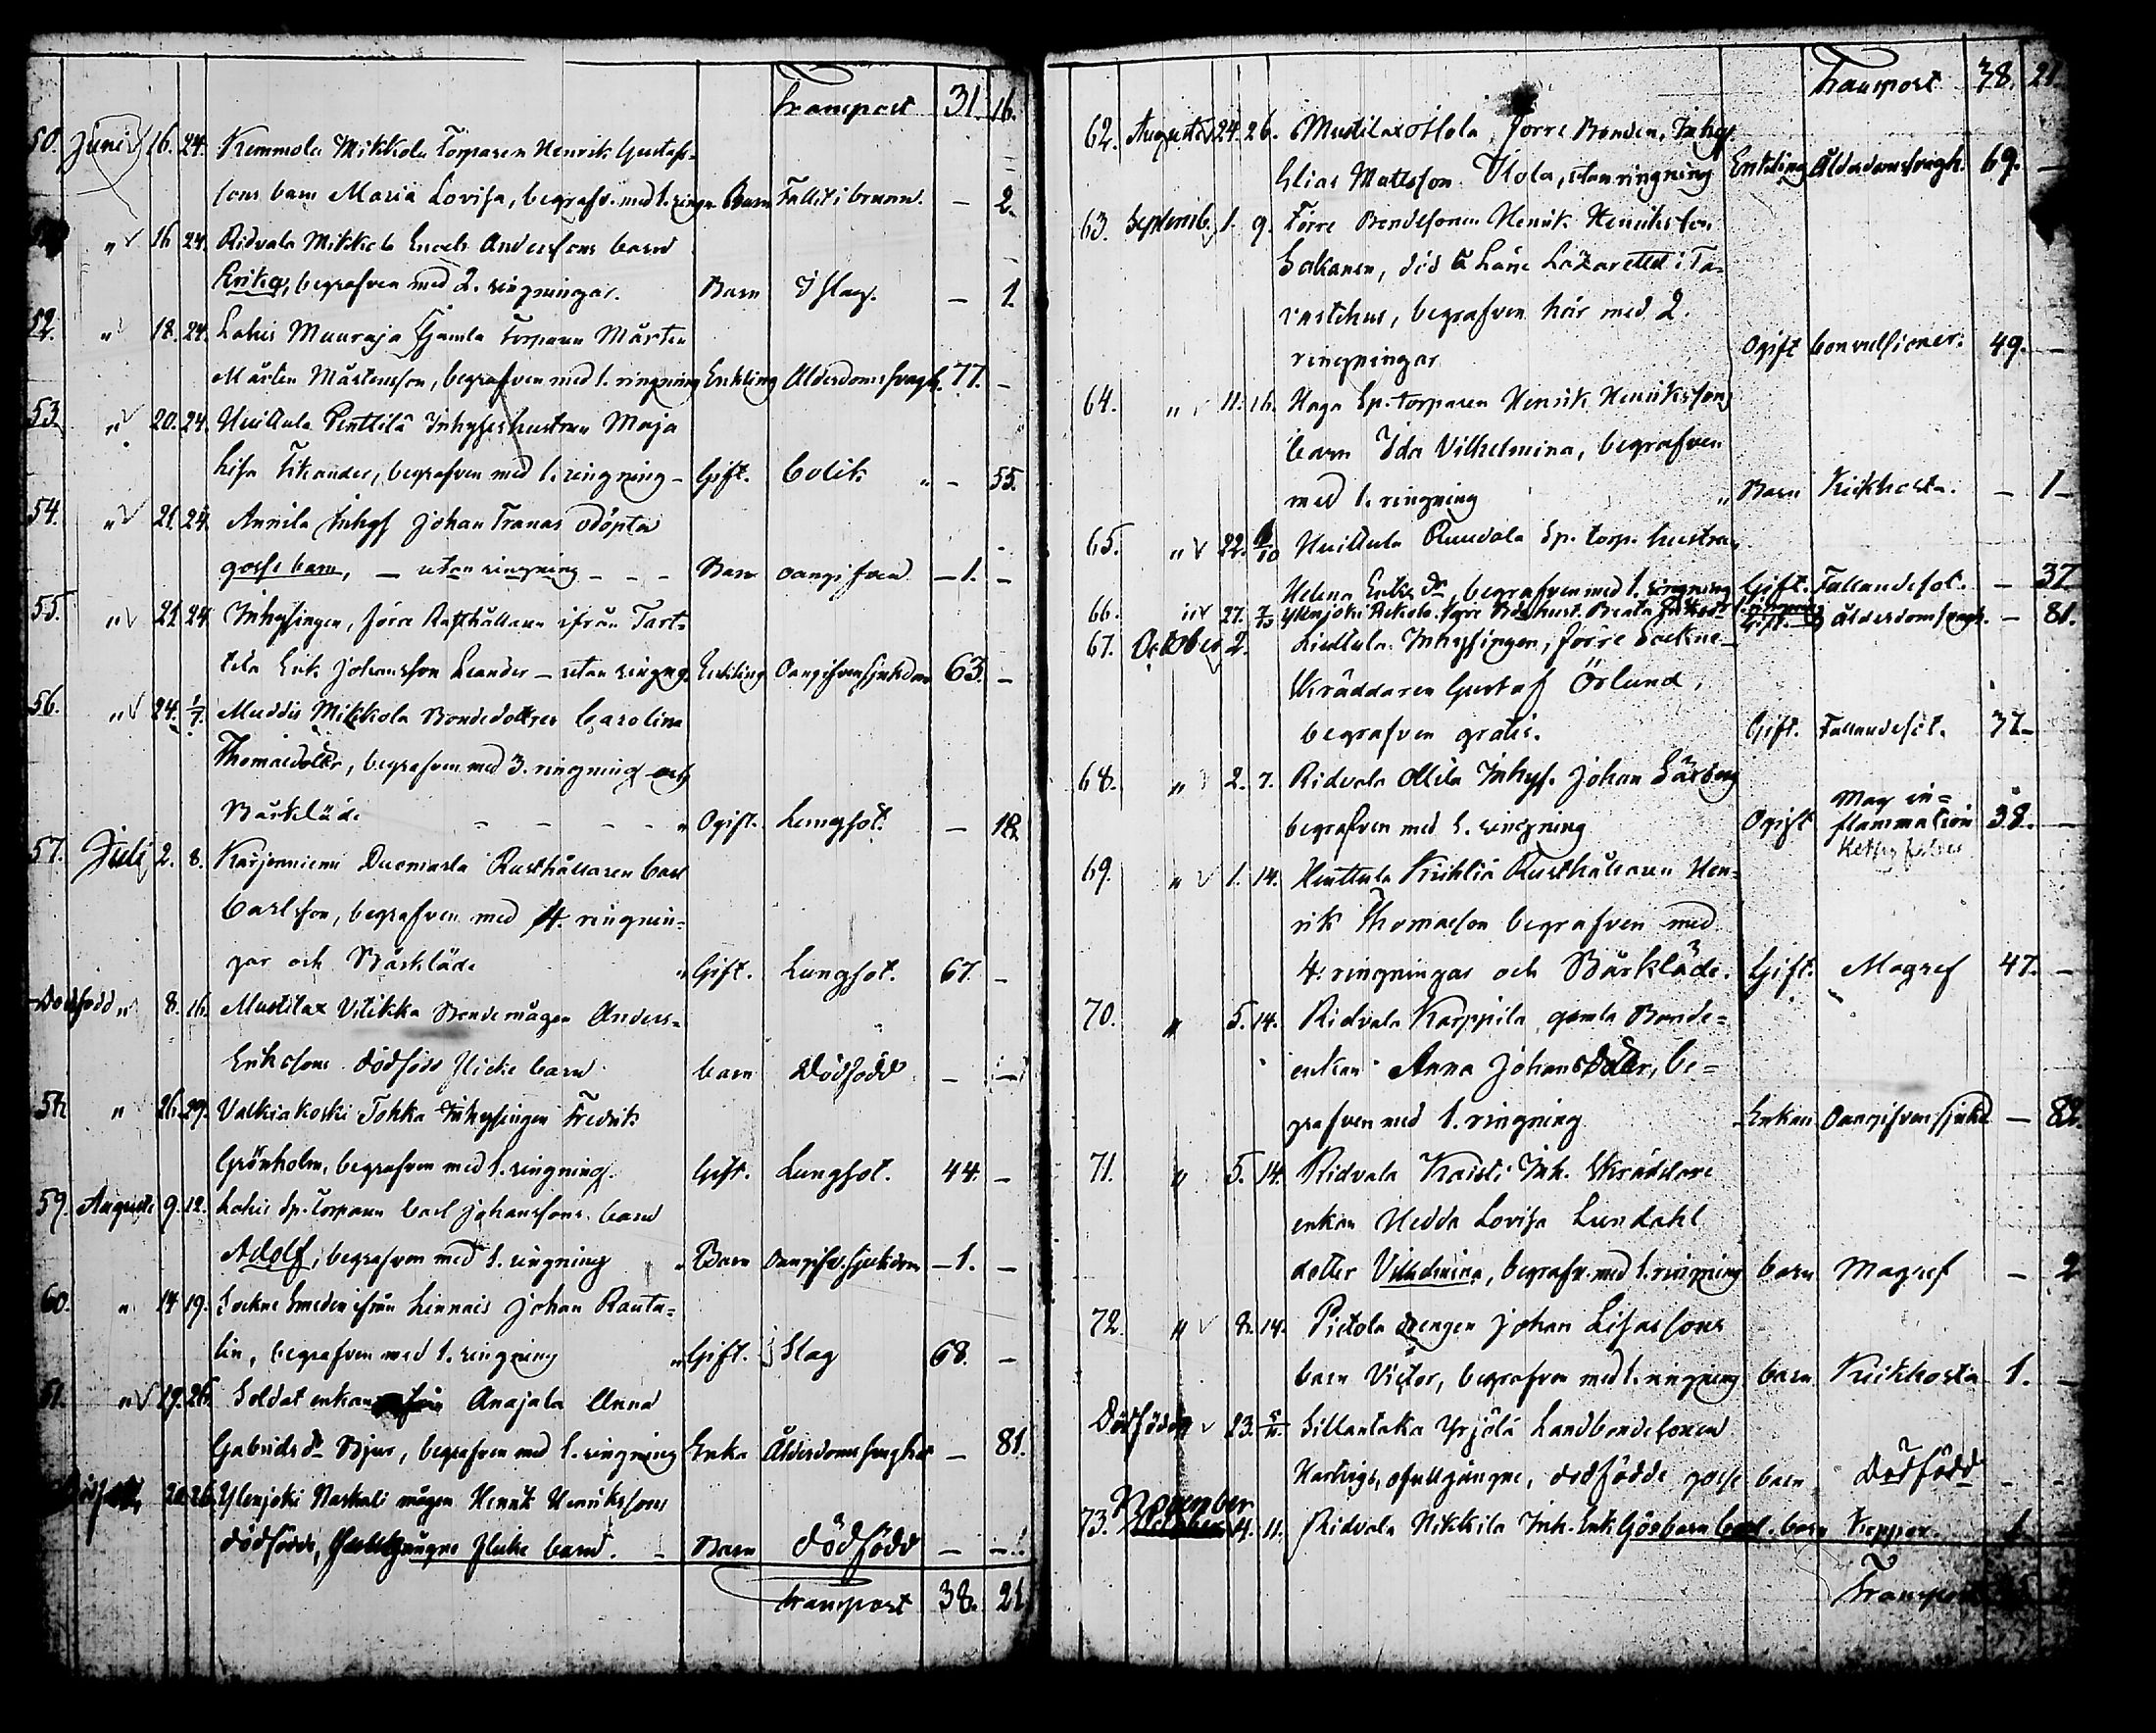 Transport 31. 16.
50. Juni 16. 24. Kemmola Mikkola Torparen Henrik Gustafs-
sons barn Maria Lovisa, begrafv. med 1. ringn. Barn Fallit i brunn. — 2.
" 16 24. Ridvala Mikkola Enoch Anderssons barn
Erika, begrafven med 2. ringningar. Barn Slag. — 1.
52. " 18. 24. Lahis Muuraja Gamla Torparen Mårten
Mårten Mårtensson, begrafven med 1. ringning Enkling Ålderdomssvagh. 77. —
53. " 20. 24. Huittula Penttilä Inhyseshustrun Maja
Lisa Fikander, begrafven med 1. ringning – Gift. Colik " – 55.
54. " 21. 24. Annila Inhys Johan Tranas odöpta
gosse barn, — utan ringning – – – Barn oangifven — 1. –
55. " 21 24. Inhysingen, förre Rusthållaren ifrån Tart-
tila Erik Johansson Leander – utan ringng. Enkling Oangifven sjukdom 63. –
56. " 24. 1/7. Muddis Mikkola Bondedottren Carolina
Thomædottr, begrafven med 3. ringning och
Bårkläde – – – – " Ogift. Lungsot. — 18.
57. Juli 2. 8. Karjenniemi Duomarla Rusthållaren Carl
Carlsson, begrafven med 4. ringnin-
gar och Bårkläde " Gift. Lungsot. 67. –
Dödfödd " 8. 16. Mustilax Utikka Bondemågen Anders-
Erikssons dödfödd flicke barn barn Dödfödd — –
58. " 26. 29. Valkiakoski Tohka Inhysingen Fredrik
Grönholm, begrafven med 1. ringning. Gift. Lungsot. 44. –
59. Augusti 9. 12. Lahis Sp. Torparen Carl Johanssons barn
Adolf, begrafven med 1. ringning " Barn Oangifv. sjukdom — 1. –
60. " 14 19. Sockne Smeden ifrån Linnais Johan Rauta-
lin, begrafven med 1. ringning " Gift. Slag 68. –
61. " 19. 26. Soldat enkan Anajala Anna
Gabrielsdr Bjur, begrafven med 1. ringning Enka Ålderdomssvaghet — 81.
20. 26. Ylenjoki Naskali mågen Henrik Henrikssons
dödfödde, flicke barn. – Barn dödfödd — –
Transport 38. 21
Transport 38. 21.
62. Augusti 24. 26. Mustilax Ulola, förre Bonden, Inhys.
Elias Mattsson Ulola, utan ringning Enkling Ålderdomssvagh. 69. —
63. Septemb. 1. 9. Förre Bondesonen Henrik Henriksson
Sakanen, död å Läne Lazarettet i Ta-
vastehus, begrafven här med 2.
ringningar Ogift Convulsioner. 49. —
64. " 11. 16. Haga Sp. torparen Henrik Henrikssons
barn Ida Vilhelmina, begrafven
med 1. ringning " Barn Kikhosta. — 1 –
65. " 22. /10 Huittula Ruudola Sp. torp. hustrun
Helena Eriks dr, begrafven med 1. ringning Gift. Fallandesot. — 37
66. " 27. Ylenjoki förre hust. Beata 1. ringning Gift. Ålderdomssvagh. — 81.
67. October 2. Liuttula Inhysingen, förre Sockne-
Skräddaren Gustaf Örlund,
begrafven gratis. Gift. Fallandesot. 37 –
68. " 2. 7. Ridvala Ollila Inhys. Johan Särberg
begrafven med 1. ringning Ogift Mag in-
flammation 38. —
69. " 1. 14. Huittula Kiihliä Rusthållaren Hen-
rik Thomasson begrafven med
4. ringningar och Bårkläde. Gift. Magref 47. –
70. " 5. 14. Ridvala Karppila gamla Bonde-
enkan Anna Johansdotter, be-
grafven med 1. ringning Enkan Oangifven sjukd — 82.
71. " 5. 14. Ridvala Kaisti Inh. Skräddare
enkan Hedda Lovisa Lundahl
dotter Vilhelmina, begrafv. med 1. ringning barn Magref — 2
72. " 8. 14. Pietola drengen Johan Lisassons
barn Victor, begrafven med 1. ringning barn Kikhosta 1. –
Dödfödd " 23. Sillantaka Yrjölä Landbondesonen
Hartvigs, ofullgångne, dödfödde gosse barn Dödfödd – –
73. November 4. 11. Ridvala Nikkilä Inh. Erik barn Carl. barn Koppor. 1
Transport